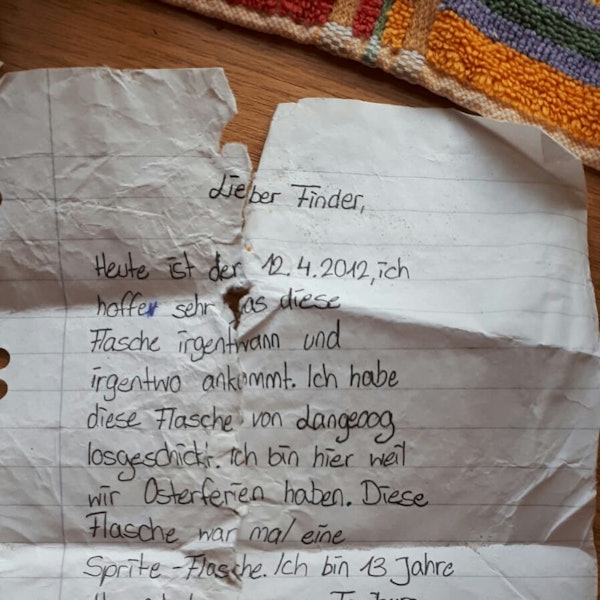 Lieber Finder,
Heute ist der 12.4.2012, ich
hoffe sehr das diese
Flasche irgentwann und
irgentwo ankommt. Ich habe
diese Flasche von Langeoog
losgeschickt. Ich bin hier weil
wir Osterferien haben. Diese
Flasche war mal eine
Sprite-Flasche. Ich bin 13 Jahre